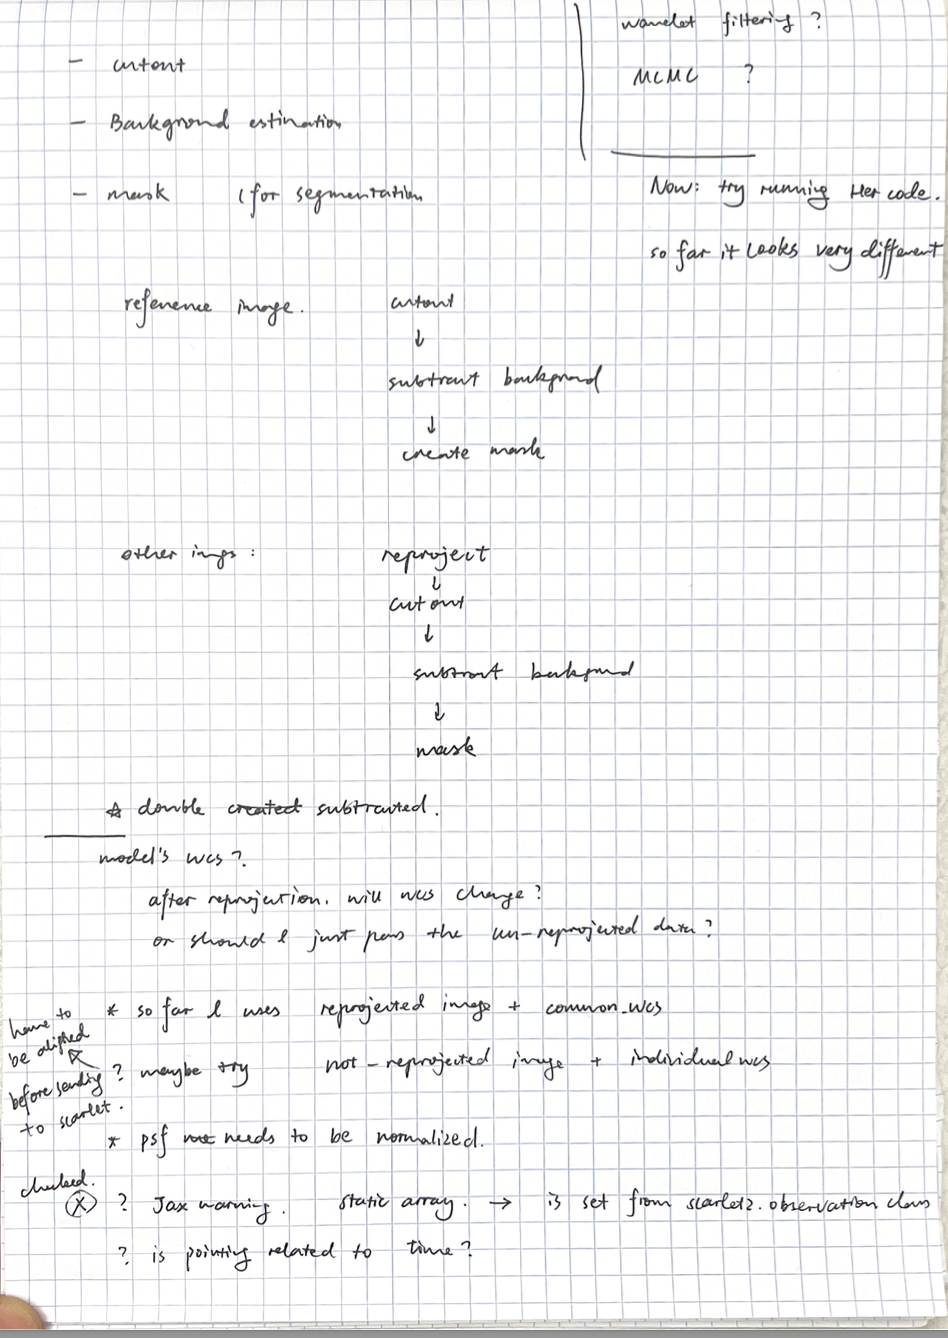 - cutout
- Background estimation
- mask (for segmentation
wavelet filtering ?
MCMC ?
Now: try running Her code.
so far it looks very different
reference image. cutout
↓
subtract background
↓
create mask
other imgs : reproject
↓
cutout
↓
subtract background
↓
mask
☆ double created subtracted.
model's wcs ?
after reprojection. will wcs change ?
or should I just pass the un-reprojected data ?
* so far I uses reprojected image + common_wcs
? maybe try not-reprojected image + individual wcs
have to
be aligned
before sending
to scarlet.
* psf needs to be normalized.
checked.
ⓧ ? Jax warning. static array. → is set from scarlet2.observation class
? is pointing related to time ?